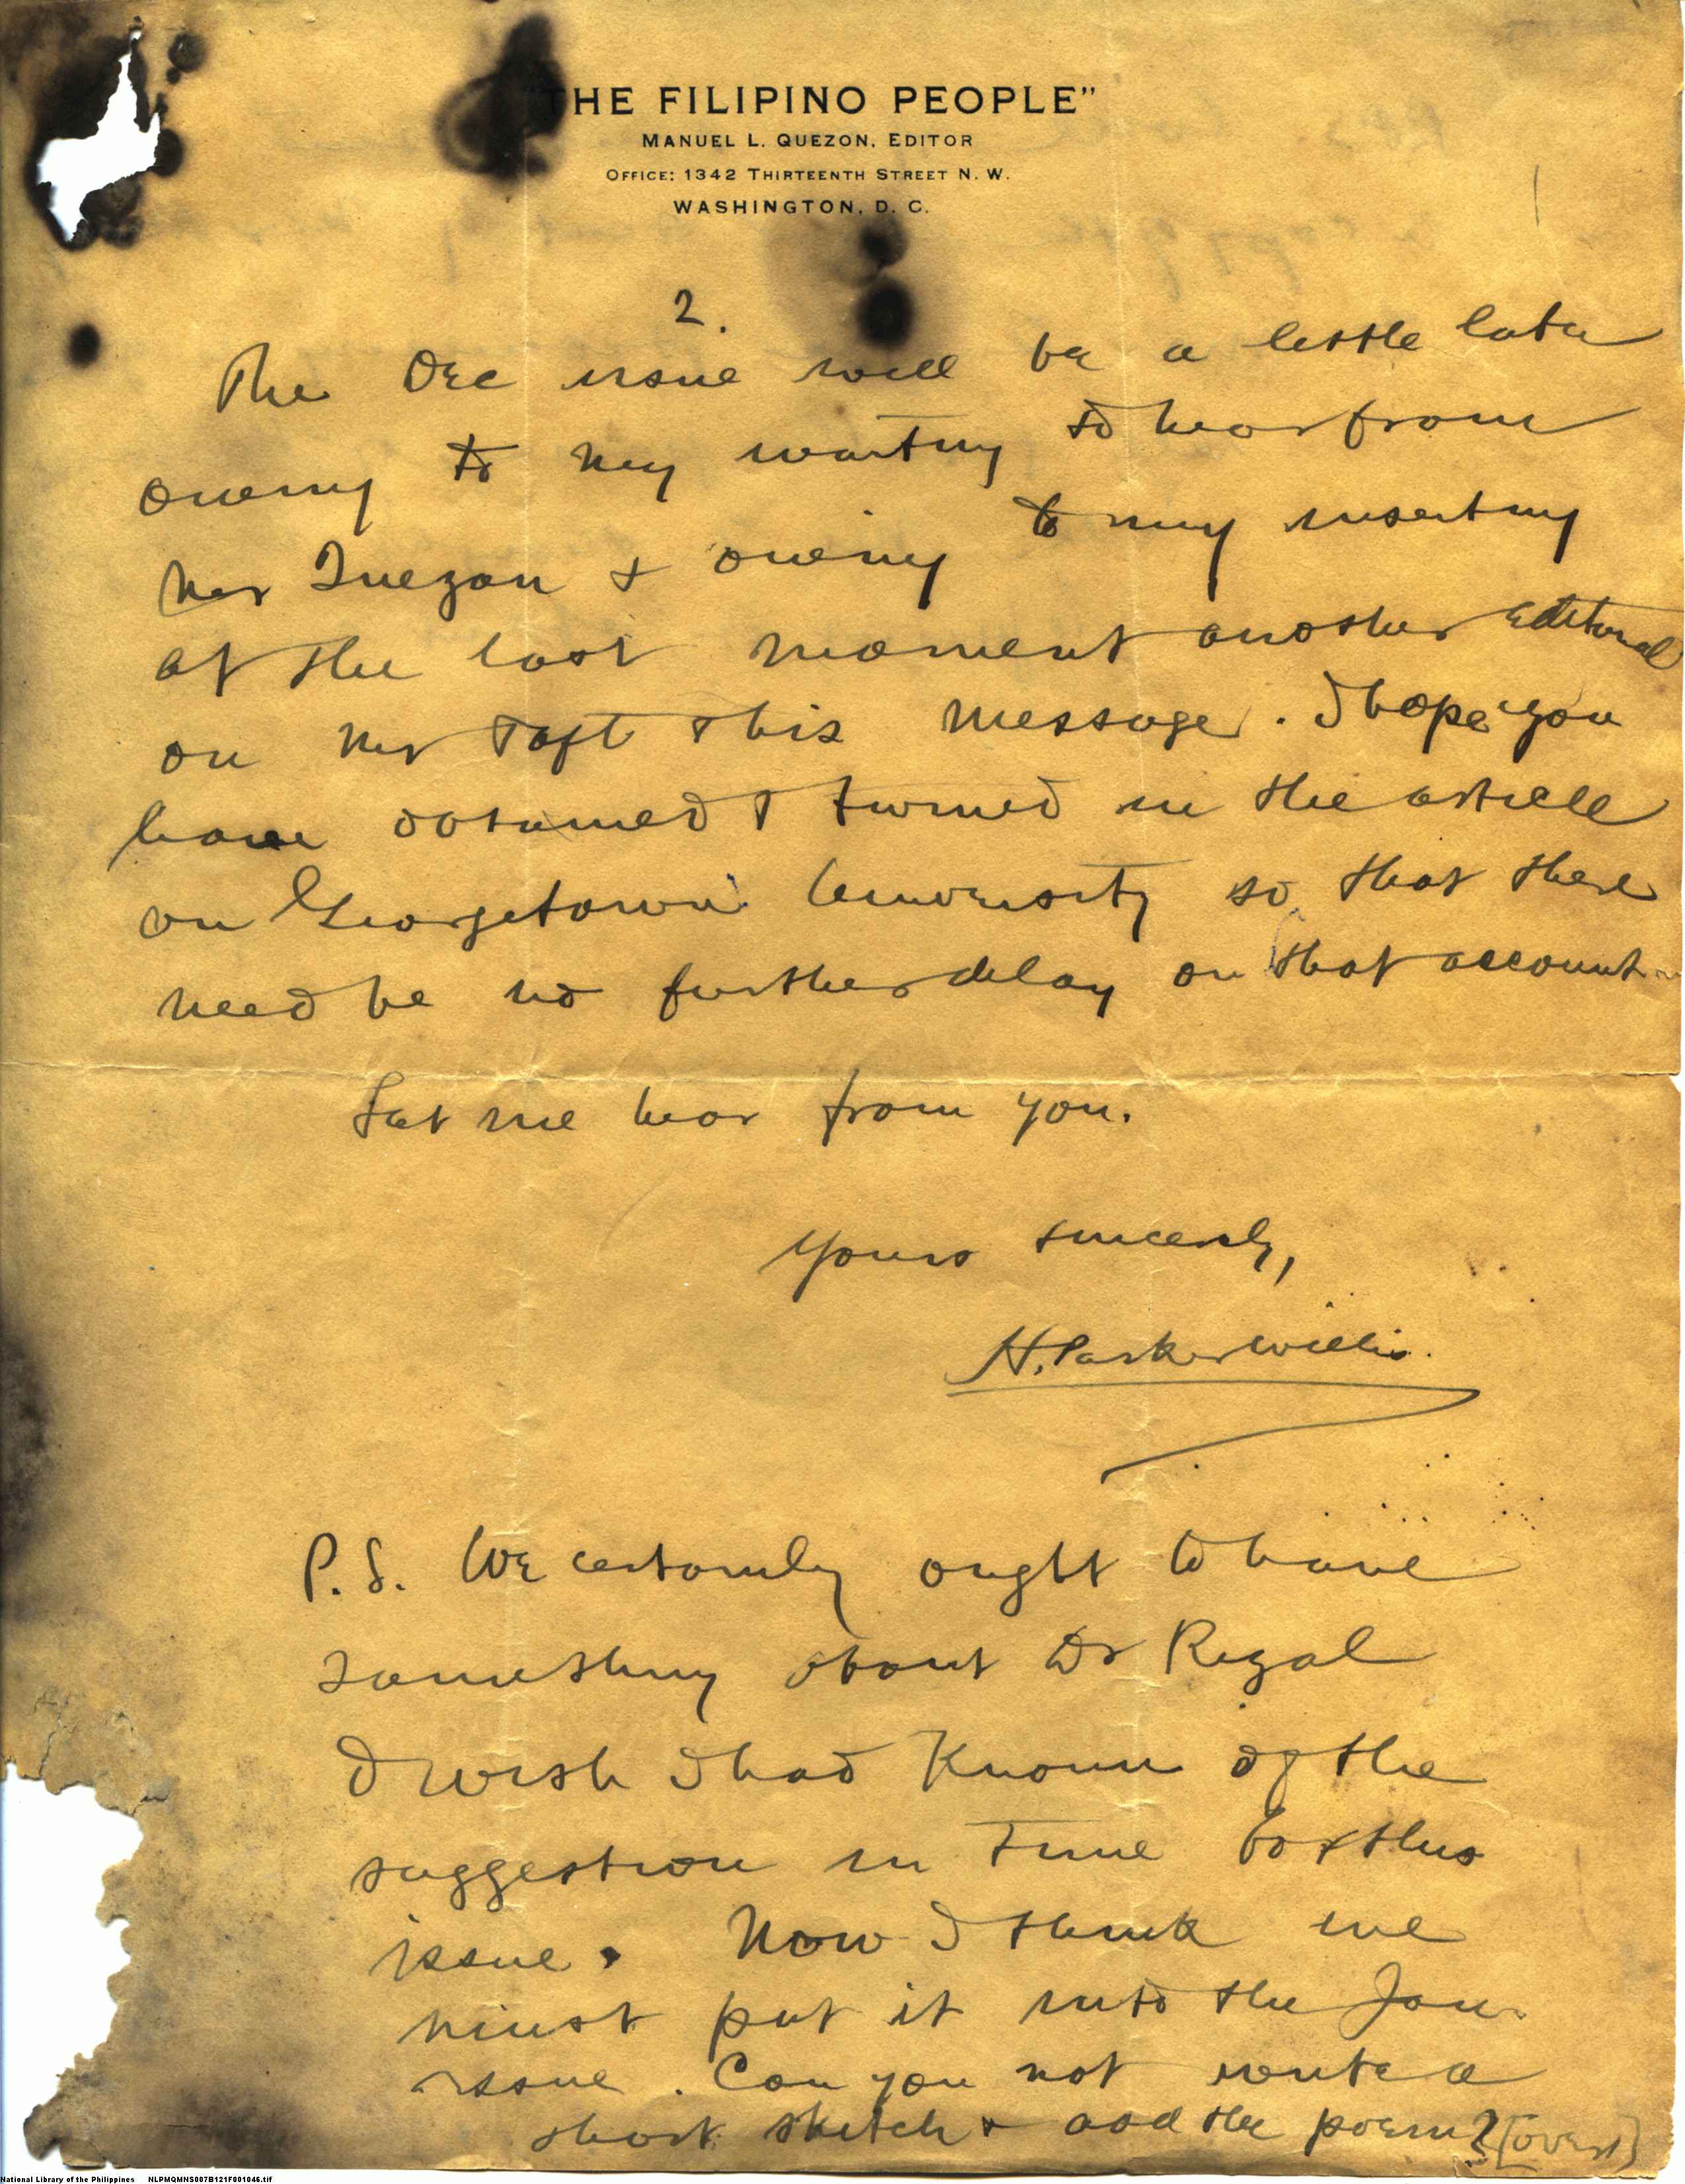 "THE FILIPINO PEOPLE"
MANUEL L. QUEZON, EDITOR
OFFICE: 1342 THIRTEENTH STREET N. W.
WASHINGTON, D. C.
2.
The Dec issue will be a little late
owing to my waiting to hear from
Mr Quezon & owing to my inserting
at the last moment another editorial
on Mr Taft & his message. I hope you
have obtained & turned in the article
on Georgetown University so that there
need be no further delay on that account.
Let me hear from you.
Yours sincerely,
H. Parker Willis.
P.S. We certainly ought to have
something about Dr Rizal
I wish I had known of the
suggestion in time for this
issue. Now I think we
must put it into the Jan.
issue. Can you not write a
short sketch & add the poem? [over]
National Library of the Philippines NLPMQMNS007B121F001046.tif